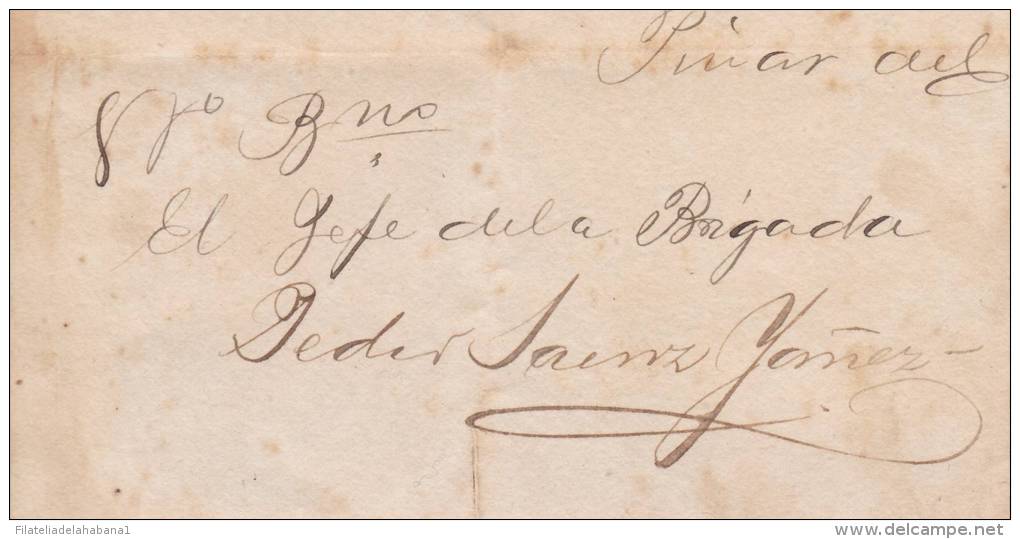 Pinar del
Vto Bno
El Jefe dela Brigada
Pedro Saenz Yañez
Filateliadelahabana1
www.delcampe.net